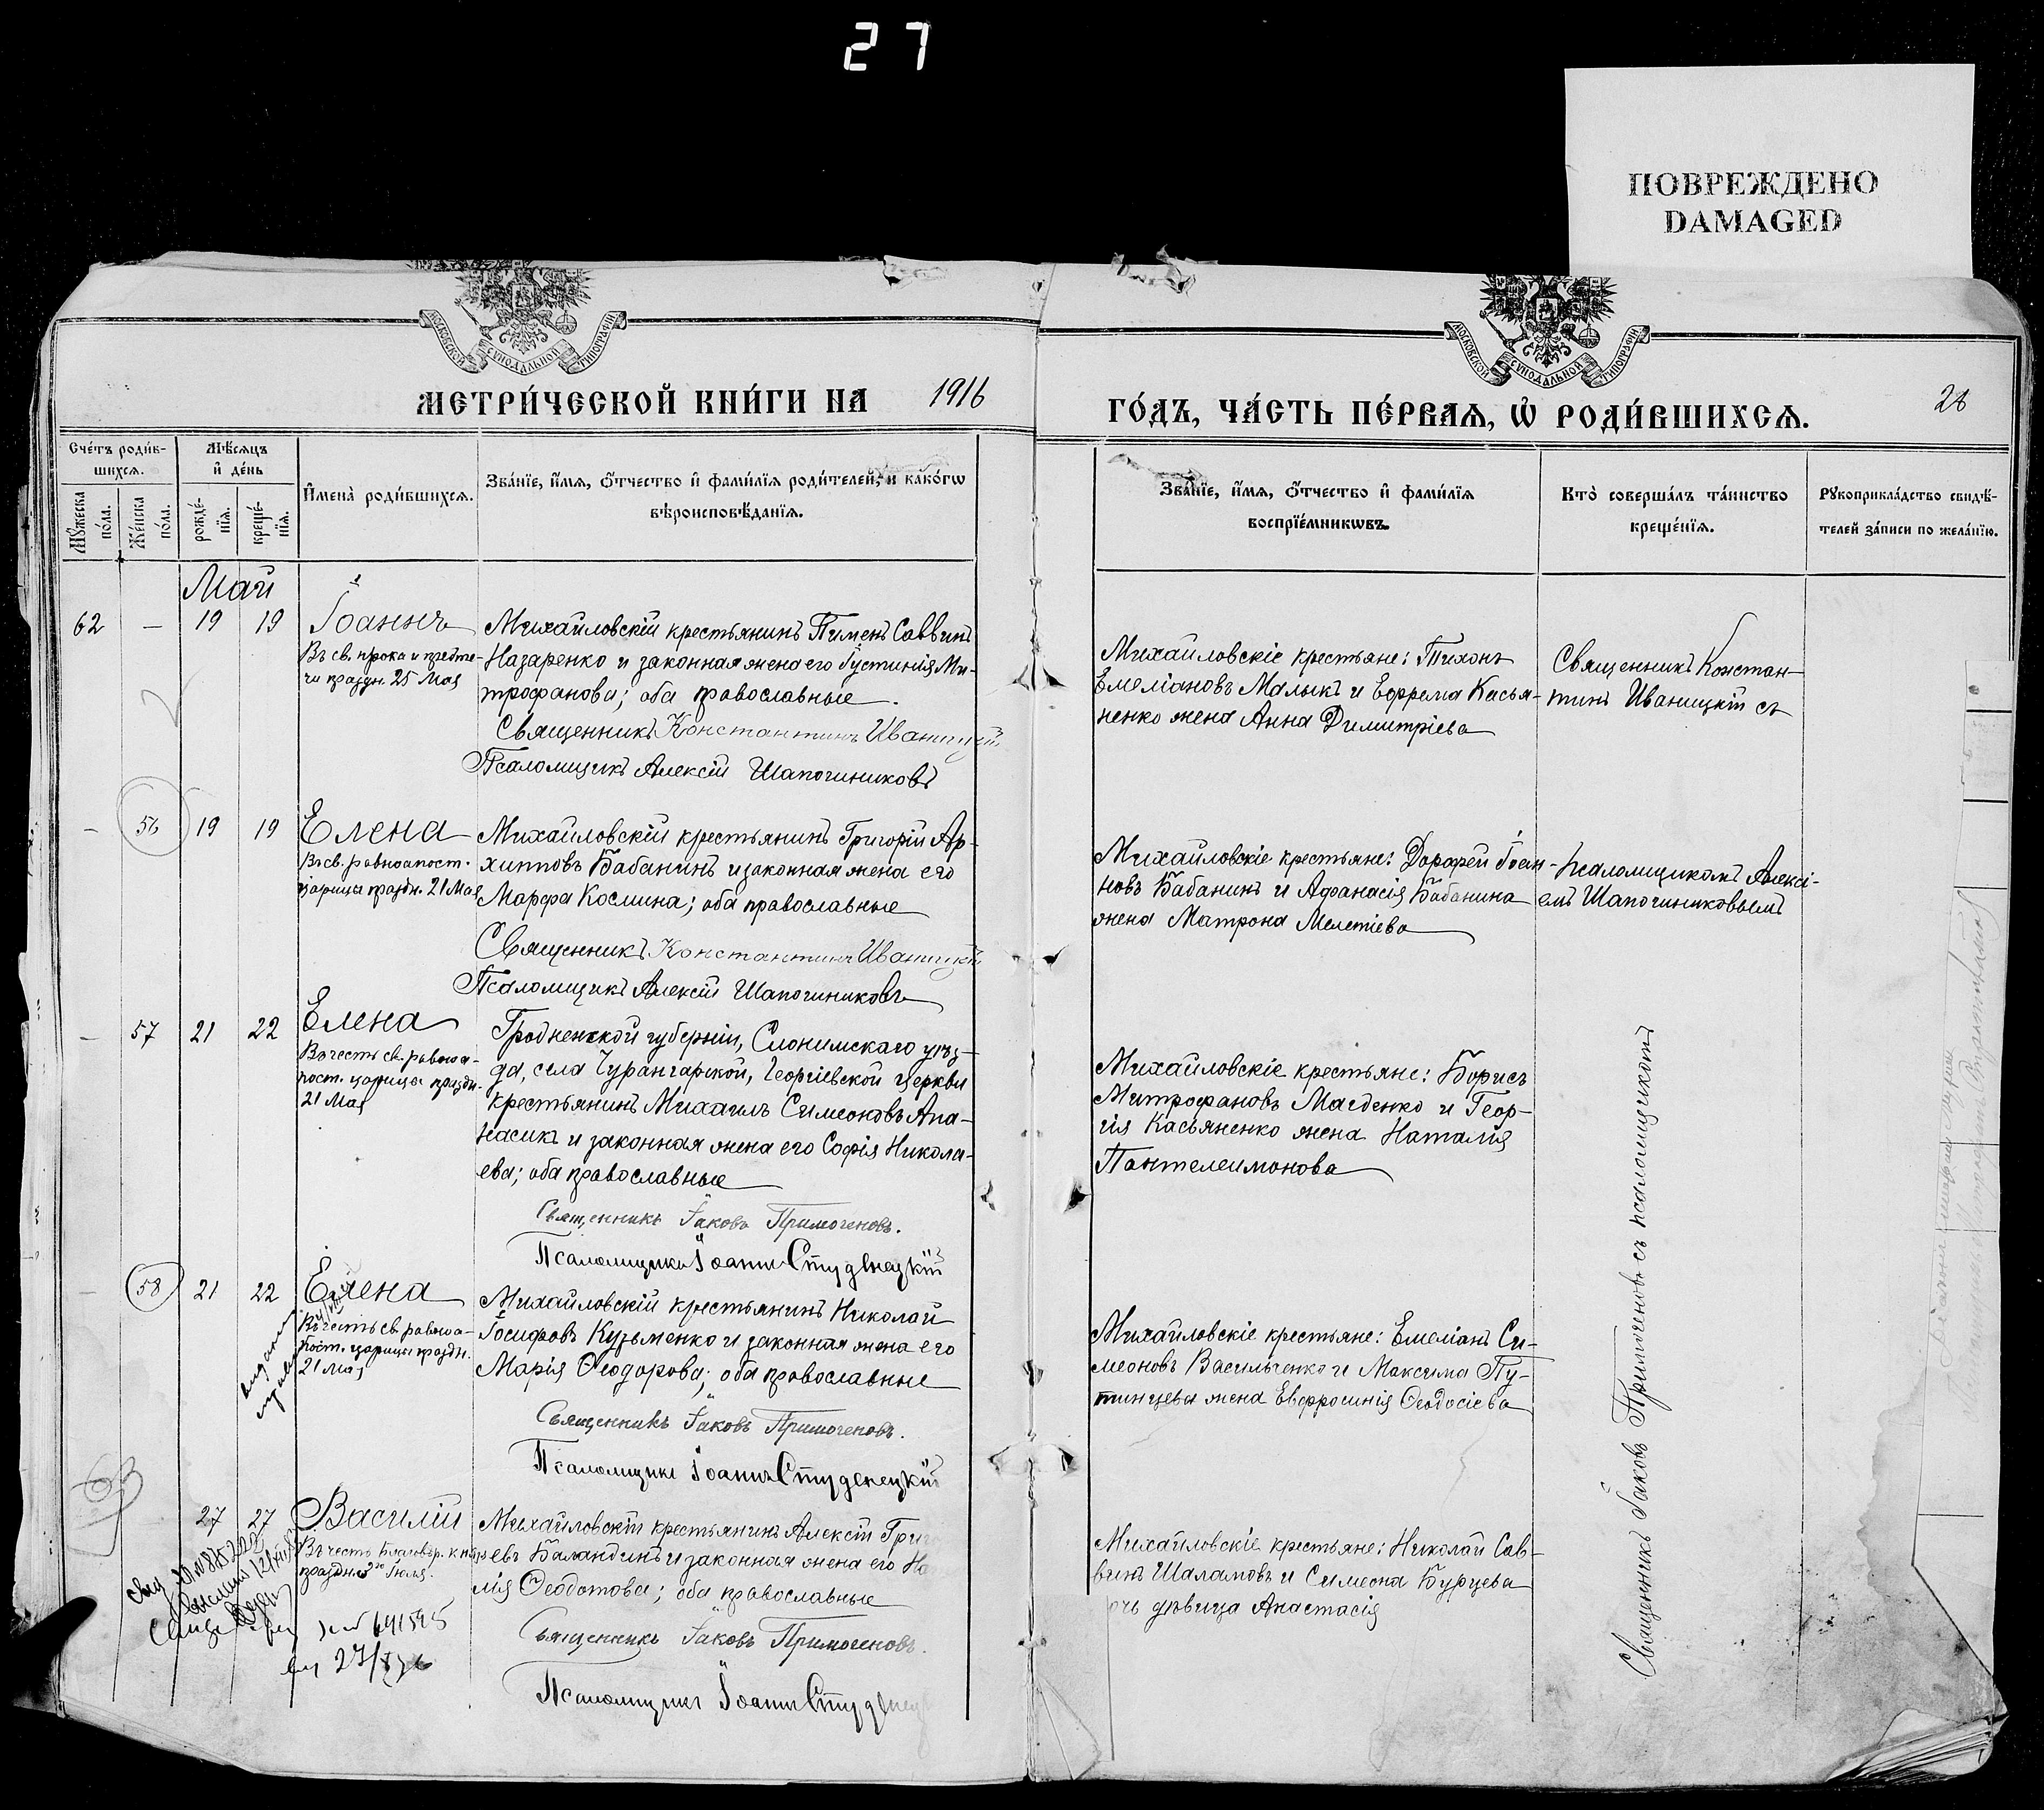 27
ПОВРЕЖДЕНО
DAMAGED
МОСКОВСКОЙ СУНОДАЛЬНОЙ ТИПОГРАФІИ
МОСКОВСКОЙ СУНОДАЛЬНОЙ ТИПОГРАФІИ
МЕТРИ́ЧЕСКОЙ КНИ́ГИ НА 1916
ГО́ДЪ, ЧА́СТЬ ПЕ́РВАѦ, Ѡ РОДИ́ВШИХСѦ.
28
Сче́тъ роди́в-
шихсѧ.
Мꙋжеска
по́ла.
Же́нска
по́ла.
Мѣ́сѧцъ
и де́нь
рожде́-
нїѧ.
креще́-
нїѧ.
Имена̀ роди́вшихсѧ.
Зва́нїе, и́мѧ, ѻ́тчество и фами́лїѧ роди́телей, и како́гѡ
вѣроисповѣ́данїѧ.
Зва́нїе, и́мѧ, ѻ́тчество и фами́лїѧ
воспрїе́мникѡвъ.
Кто̀ соверша́лъ та́инство
креще́нїѧ.
Рꙋкоприкла́дство свидѣ́-
телей за́писи по жела́нїю.
Май
62 — 19 19 Іоаннъ
Въ св. прока и предте-
чи праздн. 25 Мая
Михайловскій крестьянинъ Пименъ Саввинъ
Назаренко и законная жена его Іустинія Ми-
трофанова; оба православные
Священникъ Константинъ Иваницкій
Псаломщикъ Алексій Шапочниковъ
Михайловскіе крестьяне: Тихонъ
Емеліановъ Малыкъ и Ефрема Касья-
ненко жена Анна Димитріева
Священникъ Констан-
тинъ Иваницкій съ
— 56 19 19 Елена
Въ св. равноапост.
царицы праздн. 21 Мая
Михайловскій крестьянинъ Григорій Ар-
хипповъ Бабанинъ и законная жена его
Марфа Космина; оба православные
Священникъ Константинъ Иваницкій
Псаломщикъ Алексій Шапочниковъ
Михайловскіе крестьяне: Дорофей Іоан-
новъ Бабанинъ и Афанасія Бабанина
жена Матрона Мелетіева
псаломщикомъ Алексі-
емъ Шапочниковымъ
— 57 21 22 Елена
Въ честь св. равноа-
пост. царицы праздн.
21 Мая
Гродненской губерніи, Слонимскаго уѣз-
да, села Чурангарской, Георгіевской церкви
крестьянинъ Михаилъ Симеоновъ Апа-
насикъ и законная жена его Софія Никола-
ева; оба православные
Священникъ Іаковъ Примогеновъ.
Псаломщикъ Іоаннъ Студенецкій
Михайловскіе крестьяне: Борисъ
Митрофановъ Магденко и Геор-
гія Касьяненко жена Наталія
Пантелеимонова
— 58 21 22 Елена
Въ честь св. равноа-
пост. царицы праздн.
21 Мая
Михайловскій крестьянинъ Николай
Іосифовъ Кузьменко и законная жена его
Марія Ѳеодорова; оба православные
Священникъ Іаковъ Примогеновъ.
Псаломщикъ Іоаннъ Студенецкій
Михайловскіе крестьяне: Емеліанъ Си-
меоновъ Васильченко и Максима Пу-
тинцева жена Евфросинія Ѳеодосіева
63
27 27 Василій
Въ честь Благовѣр. князя
праздн. 3го Іюля.
Михайловскій крестьянинъ Алексій Григ
евъ Баландинъ и законная жена его На
лія Ѳеодотова; оба православные
Священникъ Іаковъ Примогеновъ.
Псаломщикъ Іоаннъ Студенец
Михайловскіе крестьяне: Николай Сав-
винъ Шаламовъ и Симеона Бурцева
очь дѣвица Анастасія
Священникъ Іаковъ Примогеновъ съ псаломщикомъ